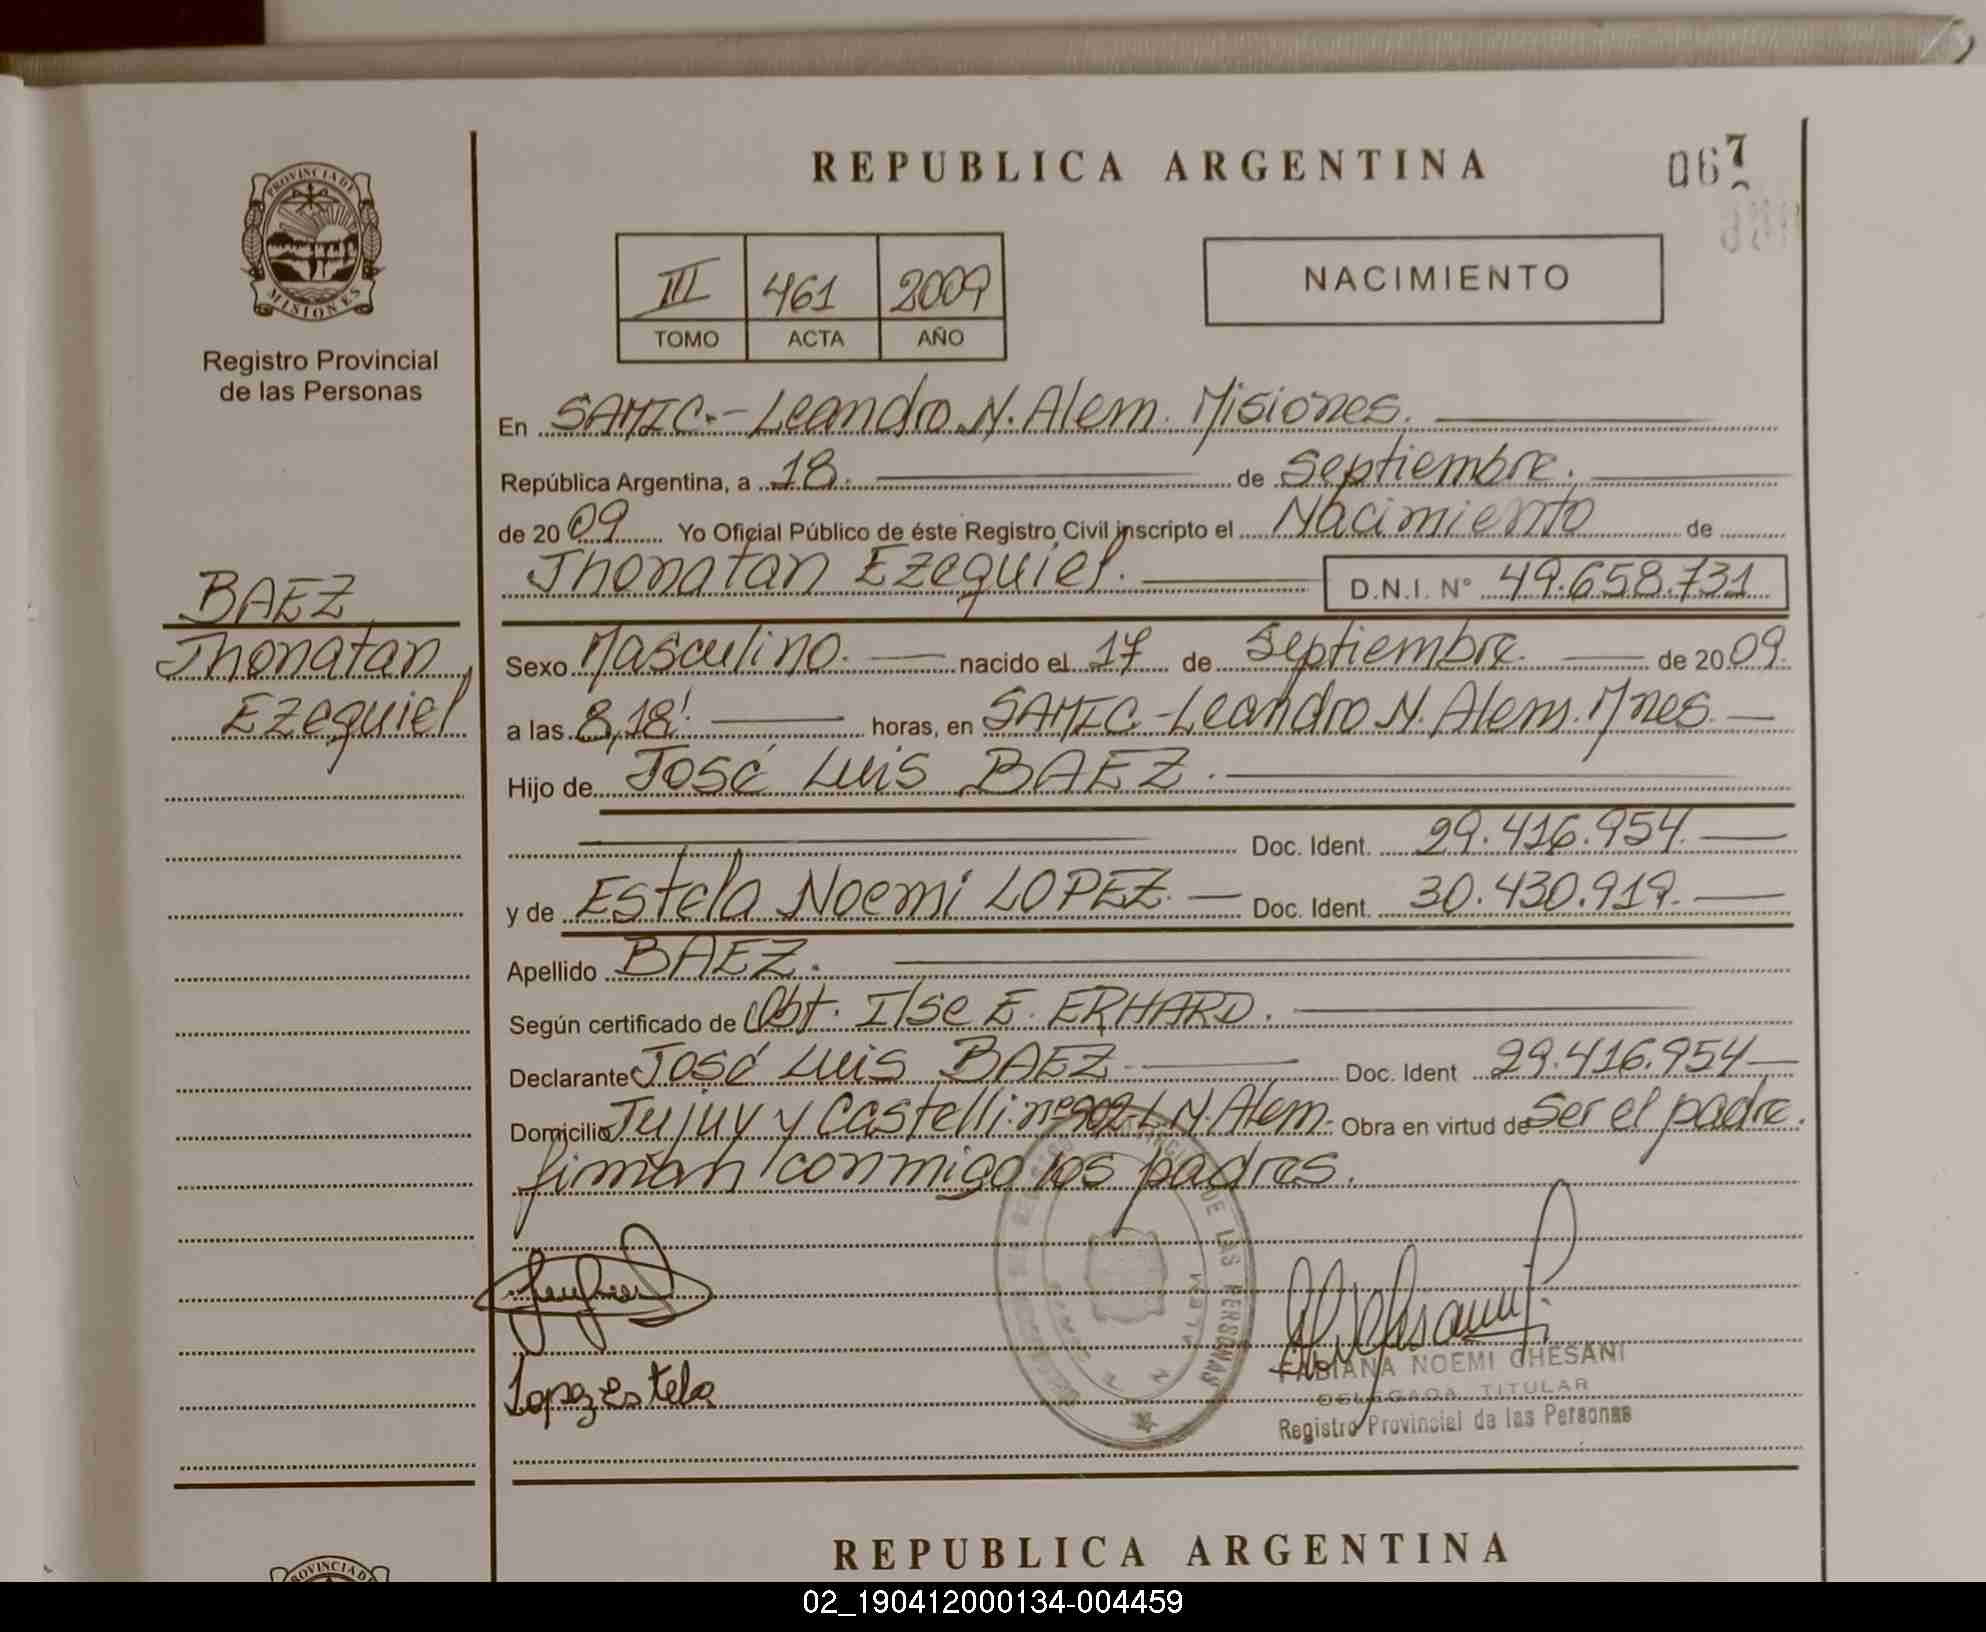 REPUBLICA ARGENTINA
067
PROVINCIA DE
MISIONES
Registro Provincial
de las Personas
III 461 2009
TOMO ACTA AÑO
NACIMIENTO
En SAMIC.- Leandro N. Alem. Misiones.
República Argentina, a 18. de Septiembre.
de 2009 Yo Oficial Público de éste Registro Civil inscripto el Nacimiento de
Jhonatan Ezequiel. D.N.I. N° 49.658.731
BAEZ
Jhonatan
Ezequiel
Sexo Masculino. nacido el 17 de Septiembre. de 2009.
a las 8,18' horas, en SAMIC - Leandro N. Alem. Mnes.
Hijo de José Luis BAEZ.
Doc. Ident. 29.416.954.
y de Estela Noemi LOPEZ. Doc. Ident. 30.430.919.
Apellido BAEZ.
Según certificado de Obt. Ilse E. ERHARD.
Declarante José Luis BAEZ Doc. Ident 29.416.954
Domicilio Jujuy y Castelli. nº 902- L.N. Alem. Obra en virtud de Ser el padre.
firman conmigo los padres.
Lopez Estela
DE LAS PERSONAS
N ALEM
FABIANA NOEMI GHESANI
DELEGADA TITULAR
Registro Provincial de las Personas
REPUBLICA ARGENTINA
PROVINCIA DE
02_190412000134-004459